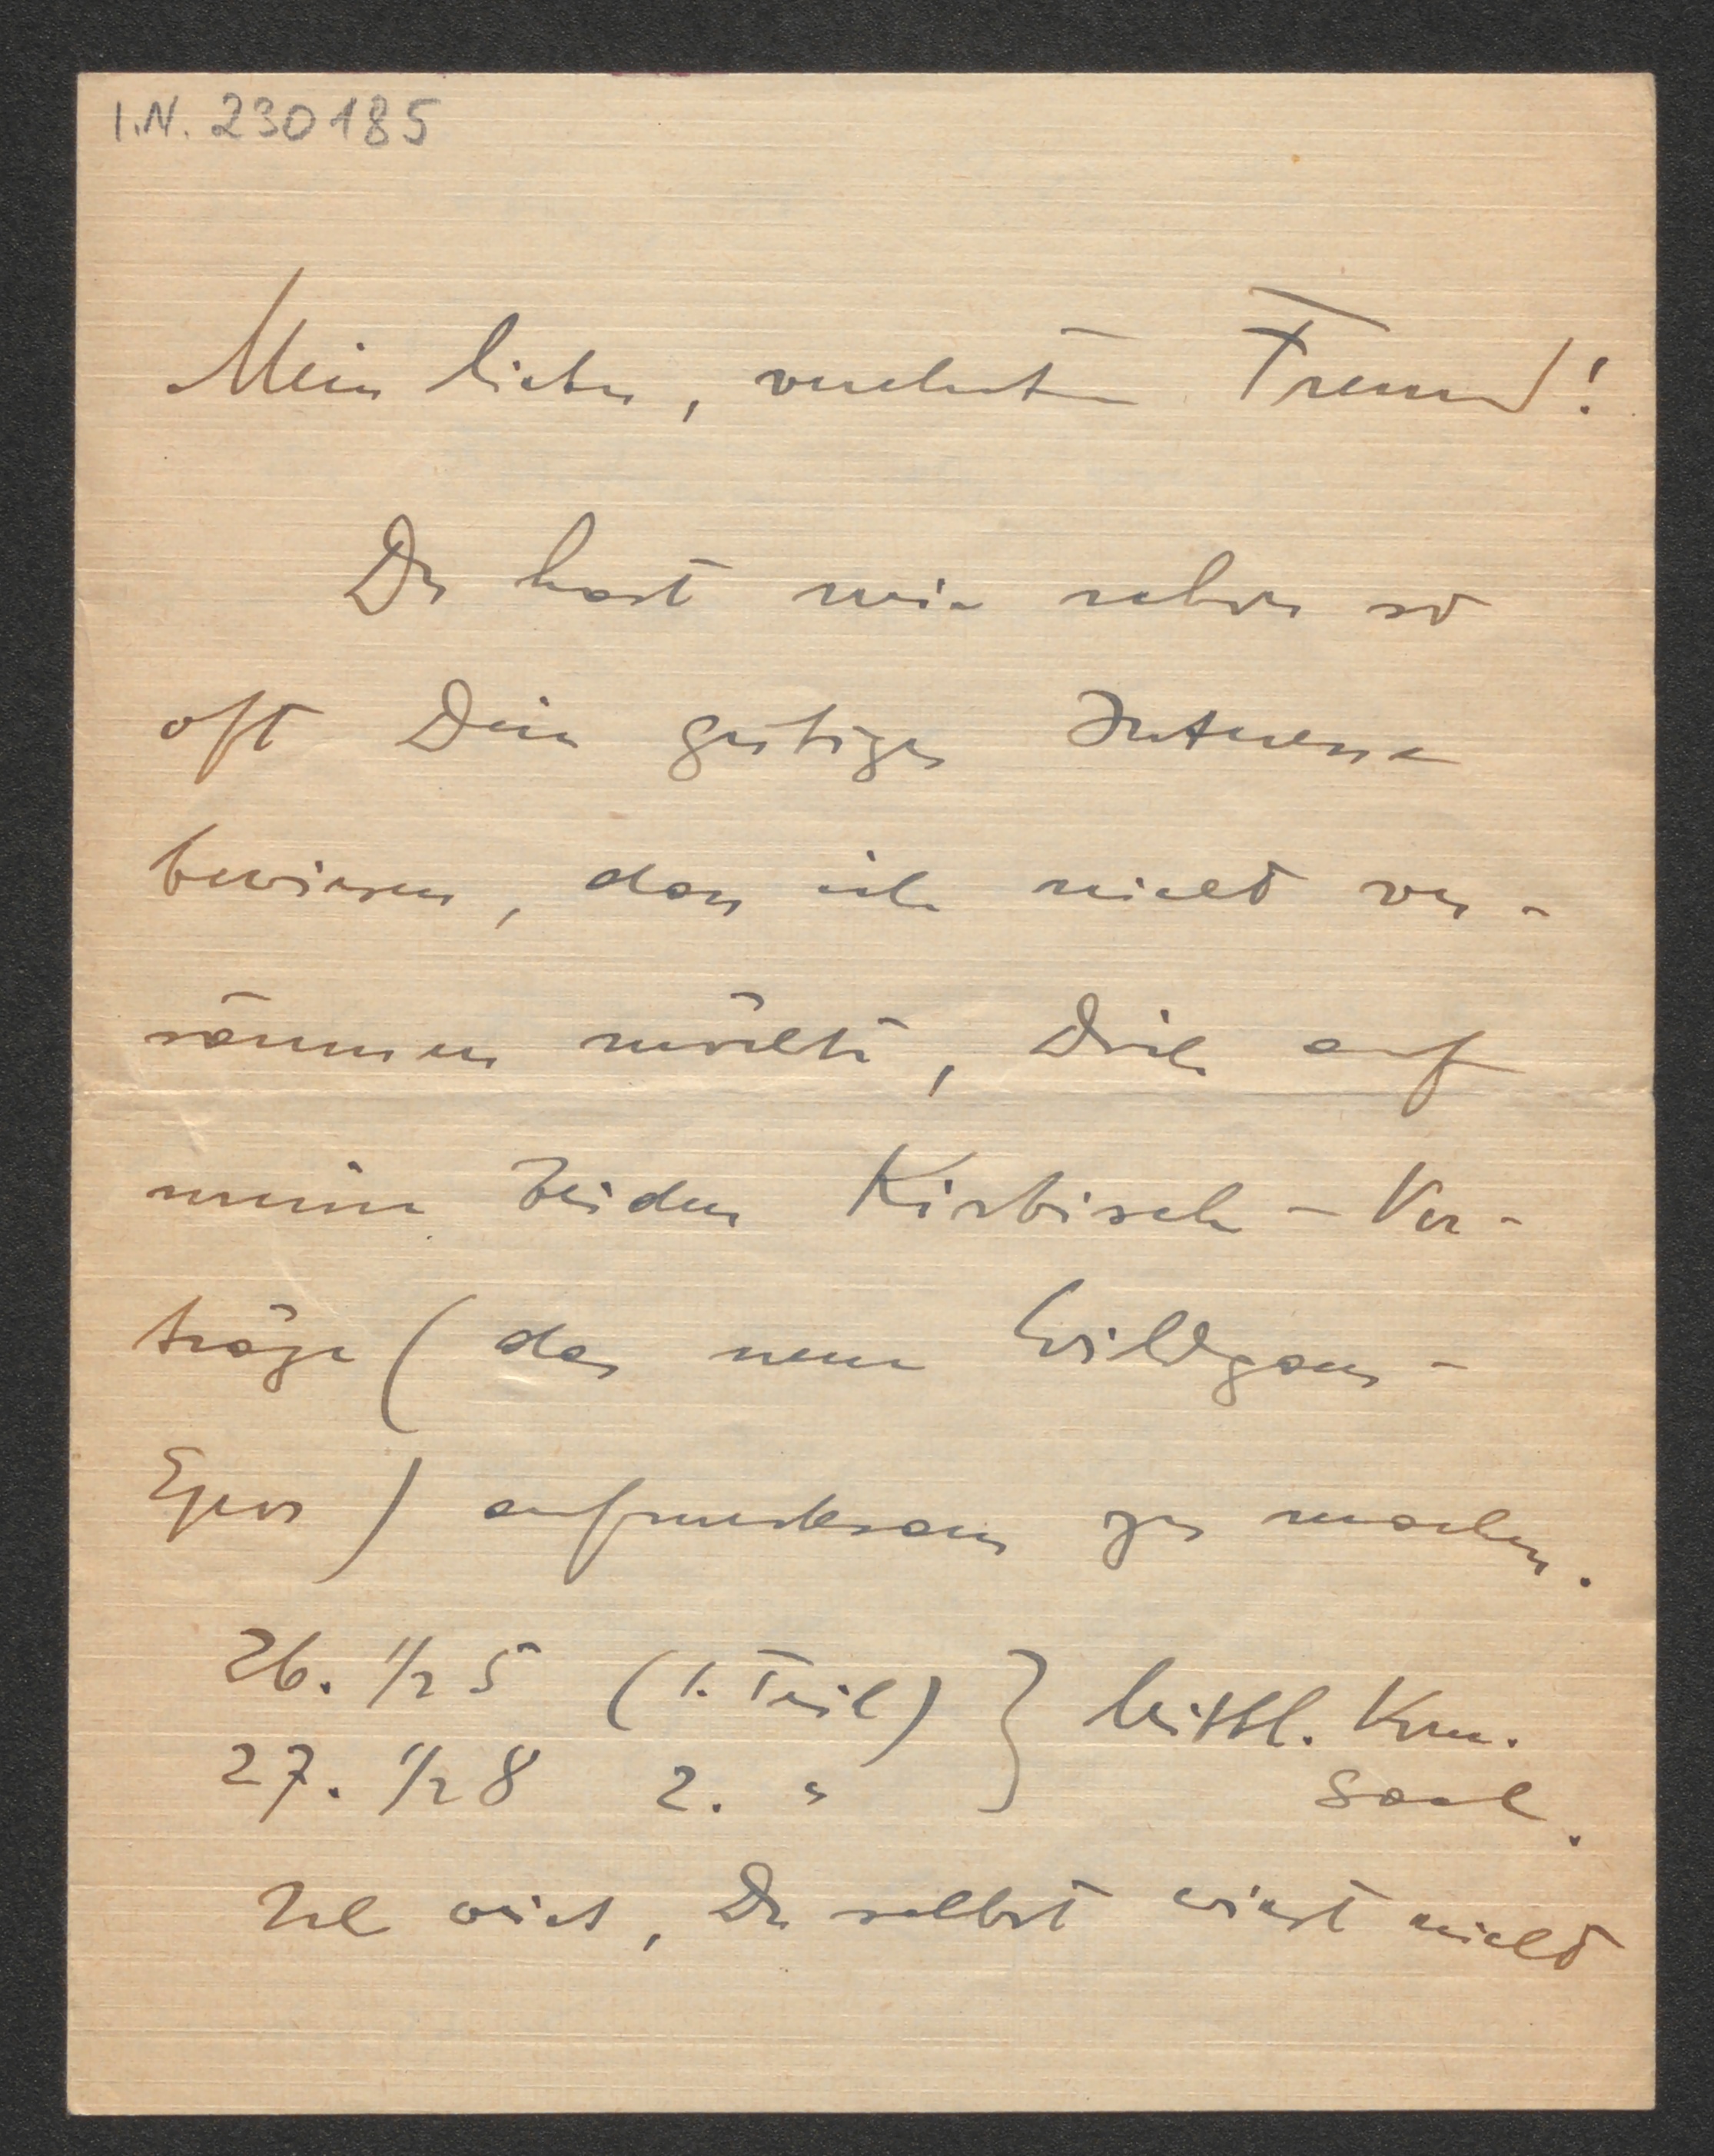 I.N. 230185
Mein lieber, verehrter Freund!
Du hast mir schon so
oft Dein gütiges Interesse
bewiesen, dass ich nicht ver-
säumen möchte, Dich auf
meine beiden Kirbisch-Vor-
träge (das neue Wildgans-
Epos) aufmerksam zu machen.
26. 1/2 5 (1. Teil) } Mittl. Konz.
27. 1/2 8 2. " Saal.
Ich weiss, Du selbst wirst nicht